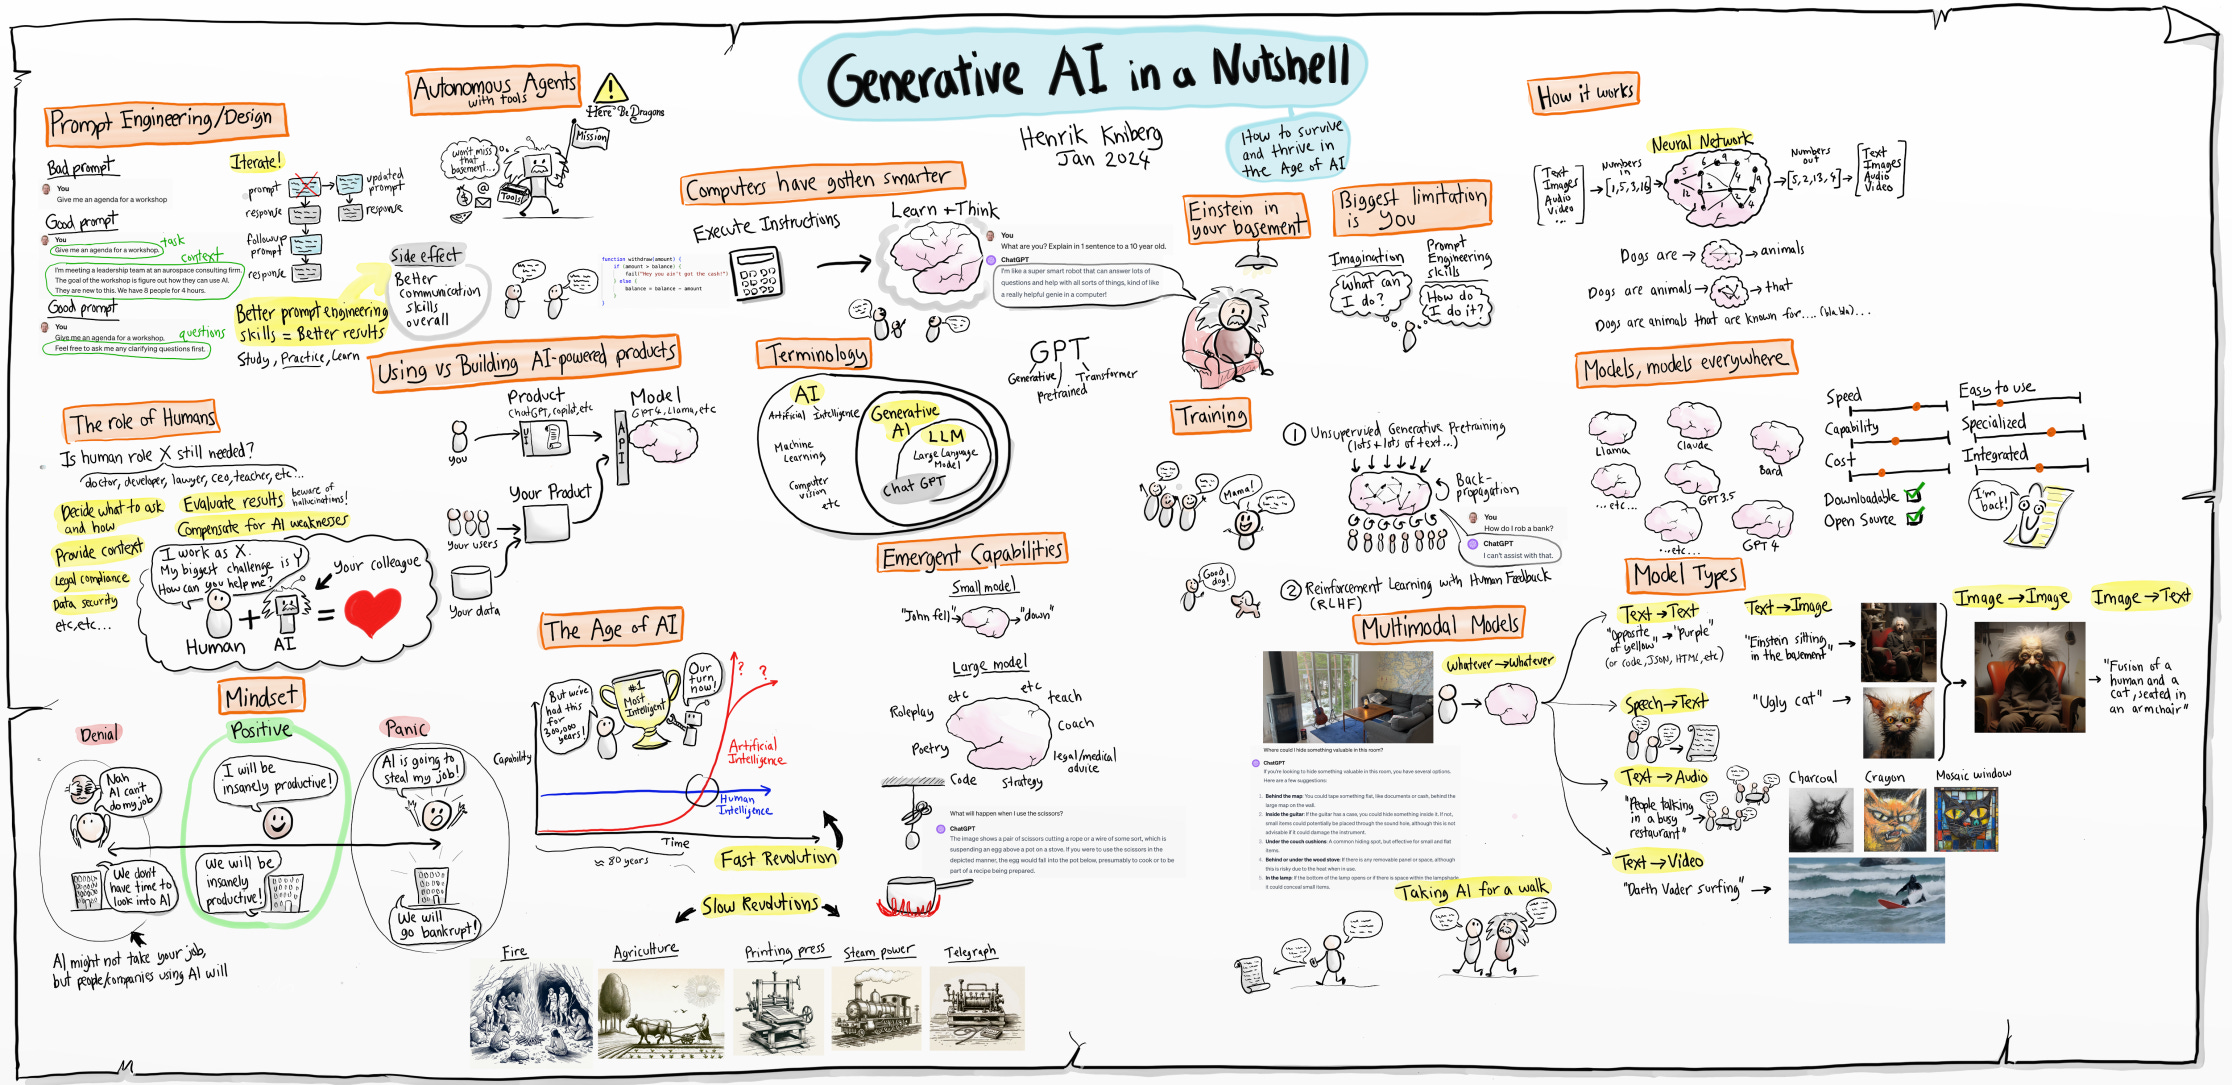 Generative AI in a Nutshell
Henrik Kniberg
Jan 2024
How to survive
and thrive in
the Age of AI
Prompt Engineering/Design
Bad prompt
You
Give me an agenda for a workshop
Good prompt
You
Give me an agenda for a workshop.
task
context
I'm meeting a leadership team at an aurospace consulting firm.
The goal of the workshop is figure out how they can use AI.
They are new to this. We have 8 people for 4 hours.
Good prompt
You
questions
Give me an agenda for a workshop.
Feel free to ask me any clarifying questions first.
Iterate!
prompt
updated
prompt
response
response
followup
prompt
response
Better prompt engineering
skills = Better results
Study, Practice, Learn
Side effect
Better
communication
skills
overall
Autonomous Agents
with tools
Here Be Dragons
Mission
Won't miss
that
basement...
Tools
@
$
Computers have gotten smarter
Execute Instructions
function withdraw(amount) {
if (amount > balance) {
fail("Hey you ain't got the cash!")
} else {
balance = balance - amount
}
Learn + Think
You
What are you? Explain in 1 sentence to a 10 year old.
ChatGPT
I'm like a super smart robot that can answer lots of
questions and help with all sorts of things, kind of like
a really helpful genie in a computer!
Einstein in
your basement
Biggest limitation
is You
Imagination
What can
I do?
Prompt
Engineering
skills
How do
I do it?
How it works
Text
Images
Audio
Video
...
Numbers
in
[1,5,3,16]
Neural Network
5
6
9
4
9
12
3
2
1
4
Numbers
out
[5,2,13,4]
Text
Images
Audio
Video
Dogs are
animals
Dogs are animals
that
Dogs are animals that are known for.... (bla bla)...
The role of Humans
Is human role X still needed?
doctor, developer, lawyer, ceo, teacher, etc...
Decide what to ask
and how
Evaluate results
beware of
hallucinations!
Compensate for AI weaknesses
Provide context
Legal compliance
Data security
etc, etc...
I work as X.
My biggest challenge is Y
How can you help me?
Your colleague
Human
+
AI
=
Using vs Building AI-powered products
Product
ChatGPT, copilot, etc
Model
GPT4, Llama, etc
You
UI
API
Your Product
Your users
Your data
Terminology
AI
Artificial Intelligence
Machine
Learning
Computer
vision
etc
Generative
AI
LLM
Large Language
Model
Chat GPT
GPT
Generative
Pretrained
Transformer
Training
1 Unsupervised Generative Pretraining
(lots + lots of text...)
Back-
propagation
Mama!
Good
dog!
You
How do I rob a bank?
ChatGPT
I can't assist with that.
2 Reinforcement Learning with Human Feedback
(RLHF)
Models, models everywhere
Llama
Claude
Bard
...etc...
GPT 3.5
...etc...
GPT 4
Speed
Capability
Cost
Easy to use
Specialized
Integrated
Downloadable
Open Source
I'm
back!
Emergent Capabilities
Small model
"John fell"
"down"
Large model
etc
etc
teach
Roleplay
coach
Poetry
legal/medical
advice
Code
strategy
What will happen when I use the scissors?
ChatGPT
The image shows a pair of scissors cutting a rope or a wire of some sort, which is
suspending an egg above a pot on a stove. If you were to use the scissors in the
depicted manner, the egg would fall into the pot below, presumably to cook or to be
part of a recipe being prepared.
Mindset
Denial
Positive
Panic
Nah
AI can't
do my job
I will be
insanely productive!
AI is going to
steal my job!
We don't
have time to
look into AI
We will be
insanely
productive!
We will
go bankrupt!
AI might not take your job,
but people/companies using AI will
The Age of AI
But we've
had this
for
300,000
years!
#1
Most
Intelligent
Our
turn
now!
?
?
Capability
Artificial
Intelligence
Human
Intelligence
Time
≈ 80 years
Fast Revolution
Slow Revolutions
Fire
Agriculture
Printing press
Steam power
Telegraph
Multimodal Models
Whatever → Whatever
Where could I hide something valuable in this room?
ChatGPT
If you're looking to hide something valuable in this room, you have several options.
Here are a few suggestions:
1. Behind the map: You could tape something flat, like documents or cash, behind the
large map on the wall.
2. Inside the guitar: If the guitar has a case, you could hide something inside it. If not,
small items could potentially be placed through the sound hole, although this is not
advisable if it could damage the instrument.
3. Under the couch cushions: A common hiding spot, but effective for small and flat
items.
4. Behind or under the wood stove: If there is any removable panel or space, although
this is risky due to the heat when in use.
5. In the lamp: If the bottom of the lamp opens or if there is space within the lampshade,
it could conceal small items.
Taking AI for a walk
Model Types
Text → Text
"Opposite
of yellow"
"Purple"
(or code, JSON, HTML, etc)
Text → Image
"Einstein sitting
in the basement"
"Ugly cat"
Image → Image
Image → Text
"Fusion of a
human and a
cat, seated in
an armchair"
Speech → Text
Text → Audio
"People talking
in a busy
restaurant"
Charcoal
Crayon
Mosaic window
Text → Video
"Darth Vader surfing"